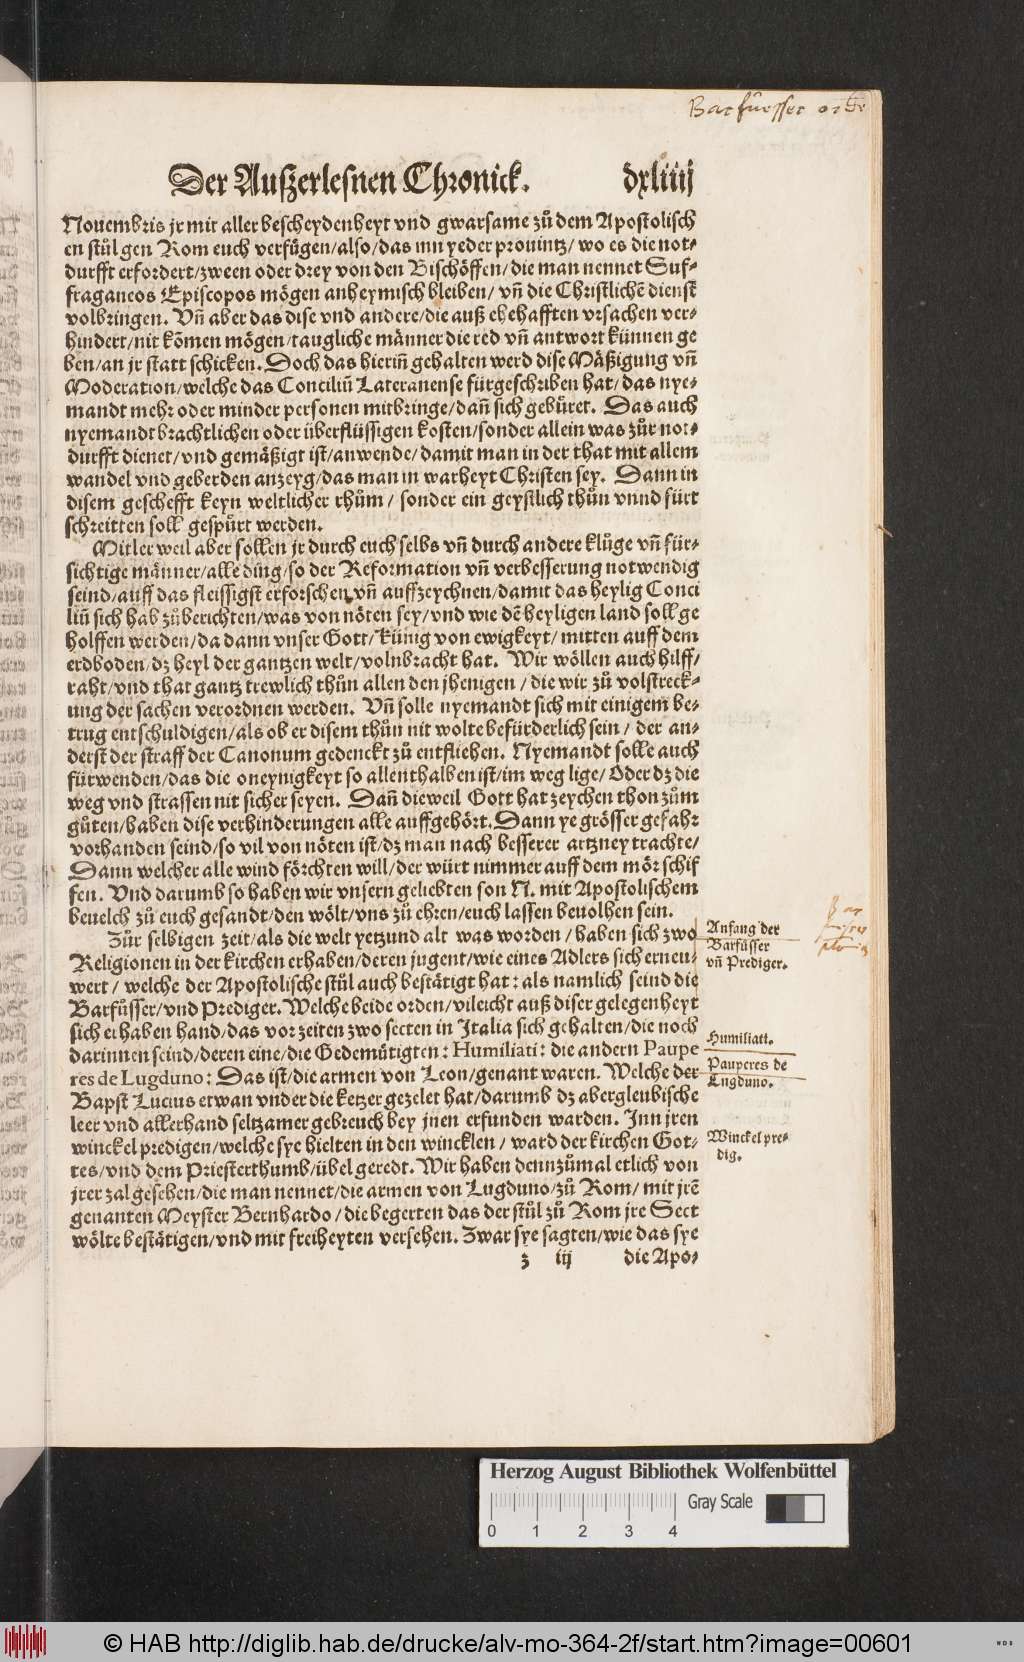 Barfuesser orde
Der Außerlesnen Chronick. dxliiij
Nouembris jr mit aller bescheydenheyt vnd gwarsame zů dem Apostolisch
en stůl gen Rom euch verfügen/also/das inn yeder prouintz/ wo es die not⸗
durfft erfordert/zween oder drey von den Bischöffen/die man nennet Suf⸗
fraganeos Episcopos mögen anheymisch bleiben/ vn̄ die Christlichē dienst
volbringen. Vn̄ aber das dise vnd andere/die auß ehehafften vrsachen ver⸗
hindert/nit kōmen mögen/taugliche männer die red vn̄ antwort künnen ge
ben/an jr statt schicken. Doch das hierin̄ gehalten werd dise Mäßigung vn̄
Moderation/welche das Conciliū Lateranense fürgeschriben hat/das nye⸗
mandt mehr oder minder personen mitbringe/dan̄ sich gebüret. Das auch
nyemandt brachtlichen oder überflüssigen kosten/sonder allein was zůr not⸗
durfft dienet/vnd gemäßigt ist/anwende/damit man in der that mit allem
wandel vnd geberden anzeyg/das man in warheyt Christen sey. Dann in
disem geschefft keyn weltlicher rhům/ sonder ein geystlich thůn vnnd fürt
schreitten soll gespürt werden.
Mitler weil aber sollen jr durch euch selbs vn̄ durch andere klůge vn̄ für⸗
sichtige männer/alle ding/so der Reformation vn̄ verbesserung notwendig
seind/auff das fleissigst erforschen vn̄ auffzeychnen/damit das heylig Conci
liū sich hab zůberichten/was von nöten sey/vnd wie dē heyligen land soll ge
holffen werden/da dann vnser Gott/Künig von ewigkeyt/mitten auff dem
erdboden/dz heyl der gantzen welt/volnbracht hat. Wir wöllen auch hilff/
raht/vnd that gantz trewlich thůn allen den jhenigen/die wir zů volstreck⸗
ung der sachen verordnen werden. Vn̄ solle nyemandt sich mit einigem be⸗
trug entschuldigen/als ob er disem thůn nit wolte befürderlich sein/ der an⸗
derst der straff der Canonum gedenckt zů entfliehen. Nyemandt solle auch
fürwenden/das die oneynigkeyt so allenthalben ist/im weg lige/Oder dz die
weg vnd strassen nit sicher seyen. Dan̄ dieweil Gott hat zeychen thon zům
gůten/haben dise verhinderungen alle auffgehört. Dann ye grösser gefahr
vorhanden seind/so vil von nöten ist/dz man nach besserer artzney trachte/
Dann welcher alle wind förchten will/der würt nimmer auff dem mör schif
fen. Vnd darumb so haben wir vnsern geliebten son N. mit Apostolischem
beuelch zů euch gesandt/den wölt/vns zů ehren/euch lassen beuolhen sein.
Zůr selbigen zeit/als die welt yetzund alt was worden/haben sich zwo
Religionen in der kirchen erhaben/deren jugent/wie eines Adlers sich erneu⸗
wert/ welche der Apostolische stůl auch bestätigt hat: als namlich seind die
Barfůsser/vnd Prediger. Welche beide orden/vileicht auß diser gelegenheyt
sich erhaben hand/das vor zeiten zwo secten in Italia sich gehalten/die noch
darinnen seind/deren eine/die Gedemütigten: Humiliati: die andern Paupe
res de Lugduno: Das ist/die armen von Leon/genant waren. Welche der
Bapst Lucius etwan vnder die ketzer gezelet hat/darumb dz abergleubische
leer vnd allerhand seltzamer gebreuch bey jnen erfunden warden. Inn jren
winckel predigen/welche sye hielten in den wincklen/ ward der kirchen Got⸗
tes/vnd dem Priesterthumb/übel geredt. Wir haben dennzůmal etlich von
jrer zal gesehen/die man nennet/die armen von Lugduno/zů Rom/mit jrē
genanten Meyster Bernhardo/die begerten das der stůl zů Rom jre Sect
wölte bestätigen/vnd mit freiheyten versehen. Zwar sye sagten/wie das sye
z iij die Apo⸗
Anfang der
Barfüsser
vn̄ Prediger.
Humiliati.
Pauperes de
Lugduno.
Winckel pre⸗
dig.
Herzog August Bibliothek Wolfenbüttel
Gray Scale
0 1 2 3 4
© HAB http://diglib.hab.de/drucke/alv-mo-364-2f/start.htm?image=00601